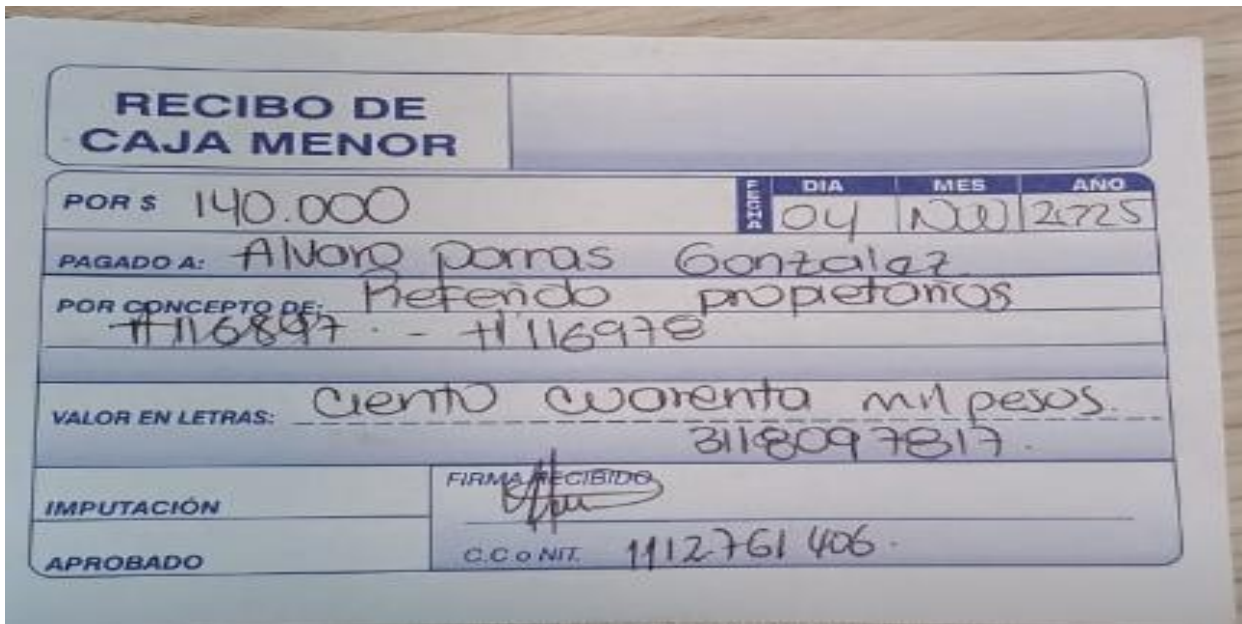 RECIBO DE
CAJA MENOR
POR $ 140.000
FECHA
DIA MES AÑO
04 2025
PAGADO A: Alvaro Parras Gonzalez
POR CONCEPTO DE: Referido propietarios
#116897 - #116978
VALOR EN LETRAS: Ciento cuarenta mil pesos.
3118097817.
IMPUTACIÓN
FIRMA RECIBIDO
APROBADO
C.C o NIT. 1112761406.